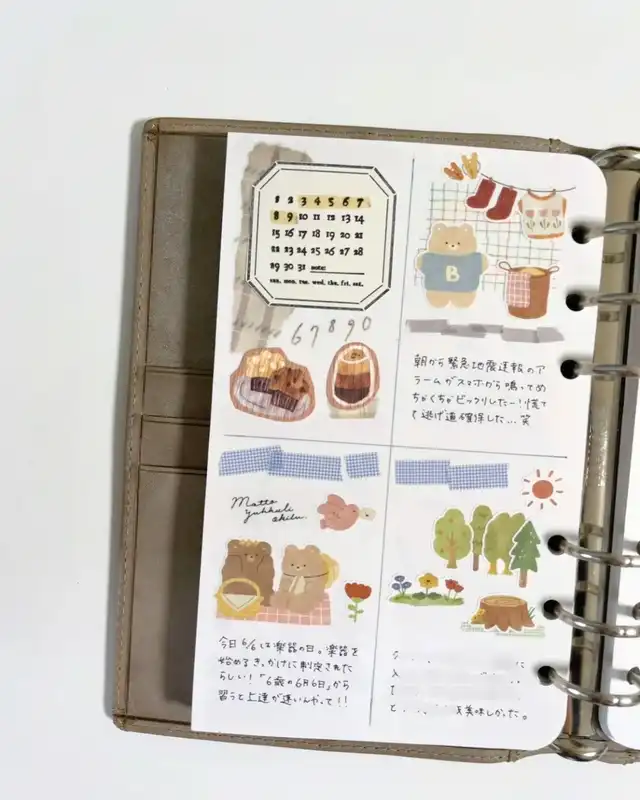 1 2 3 4 5 6 7
8 9 10 11 12 13 14
15 16 17 18 19 20 21
22 23 24 25 26 27 28
29 30 31 note:
sun. mon. tue. wed. thu. fri. sat.
6 7 8 9 0
B
朝から緊急地震速報のア
ラームがスマホから鳴ってめ
ちゃくちゃビックリしたー!慌て
て逃げ道確保した...笑
Motto
yukkuli
今日6/6は楽器の日。楽器を
始めるきっかけに制定された
らしい!「6歳の6月6日」から
習うと上達が速いんやって!!
美味しかった。